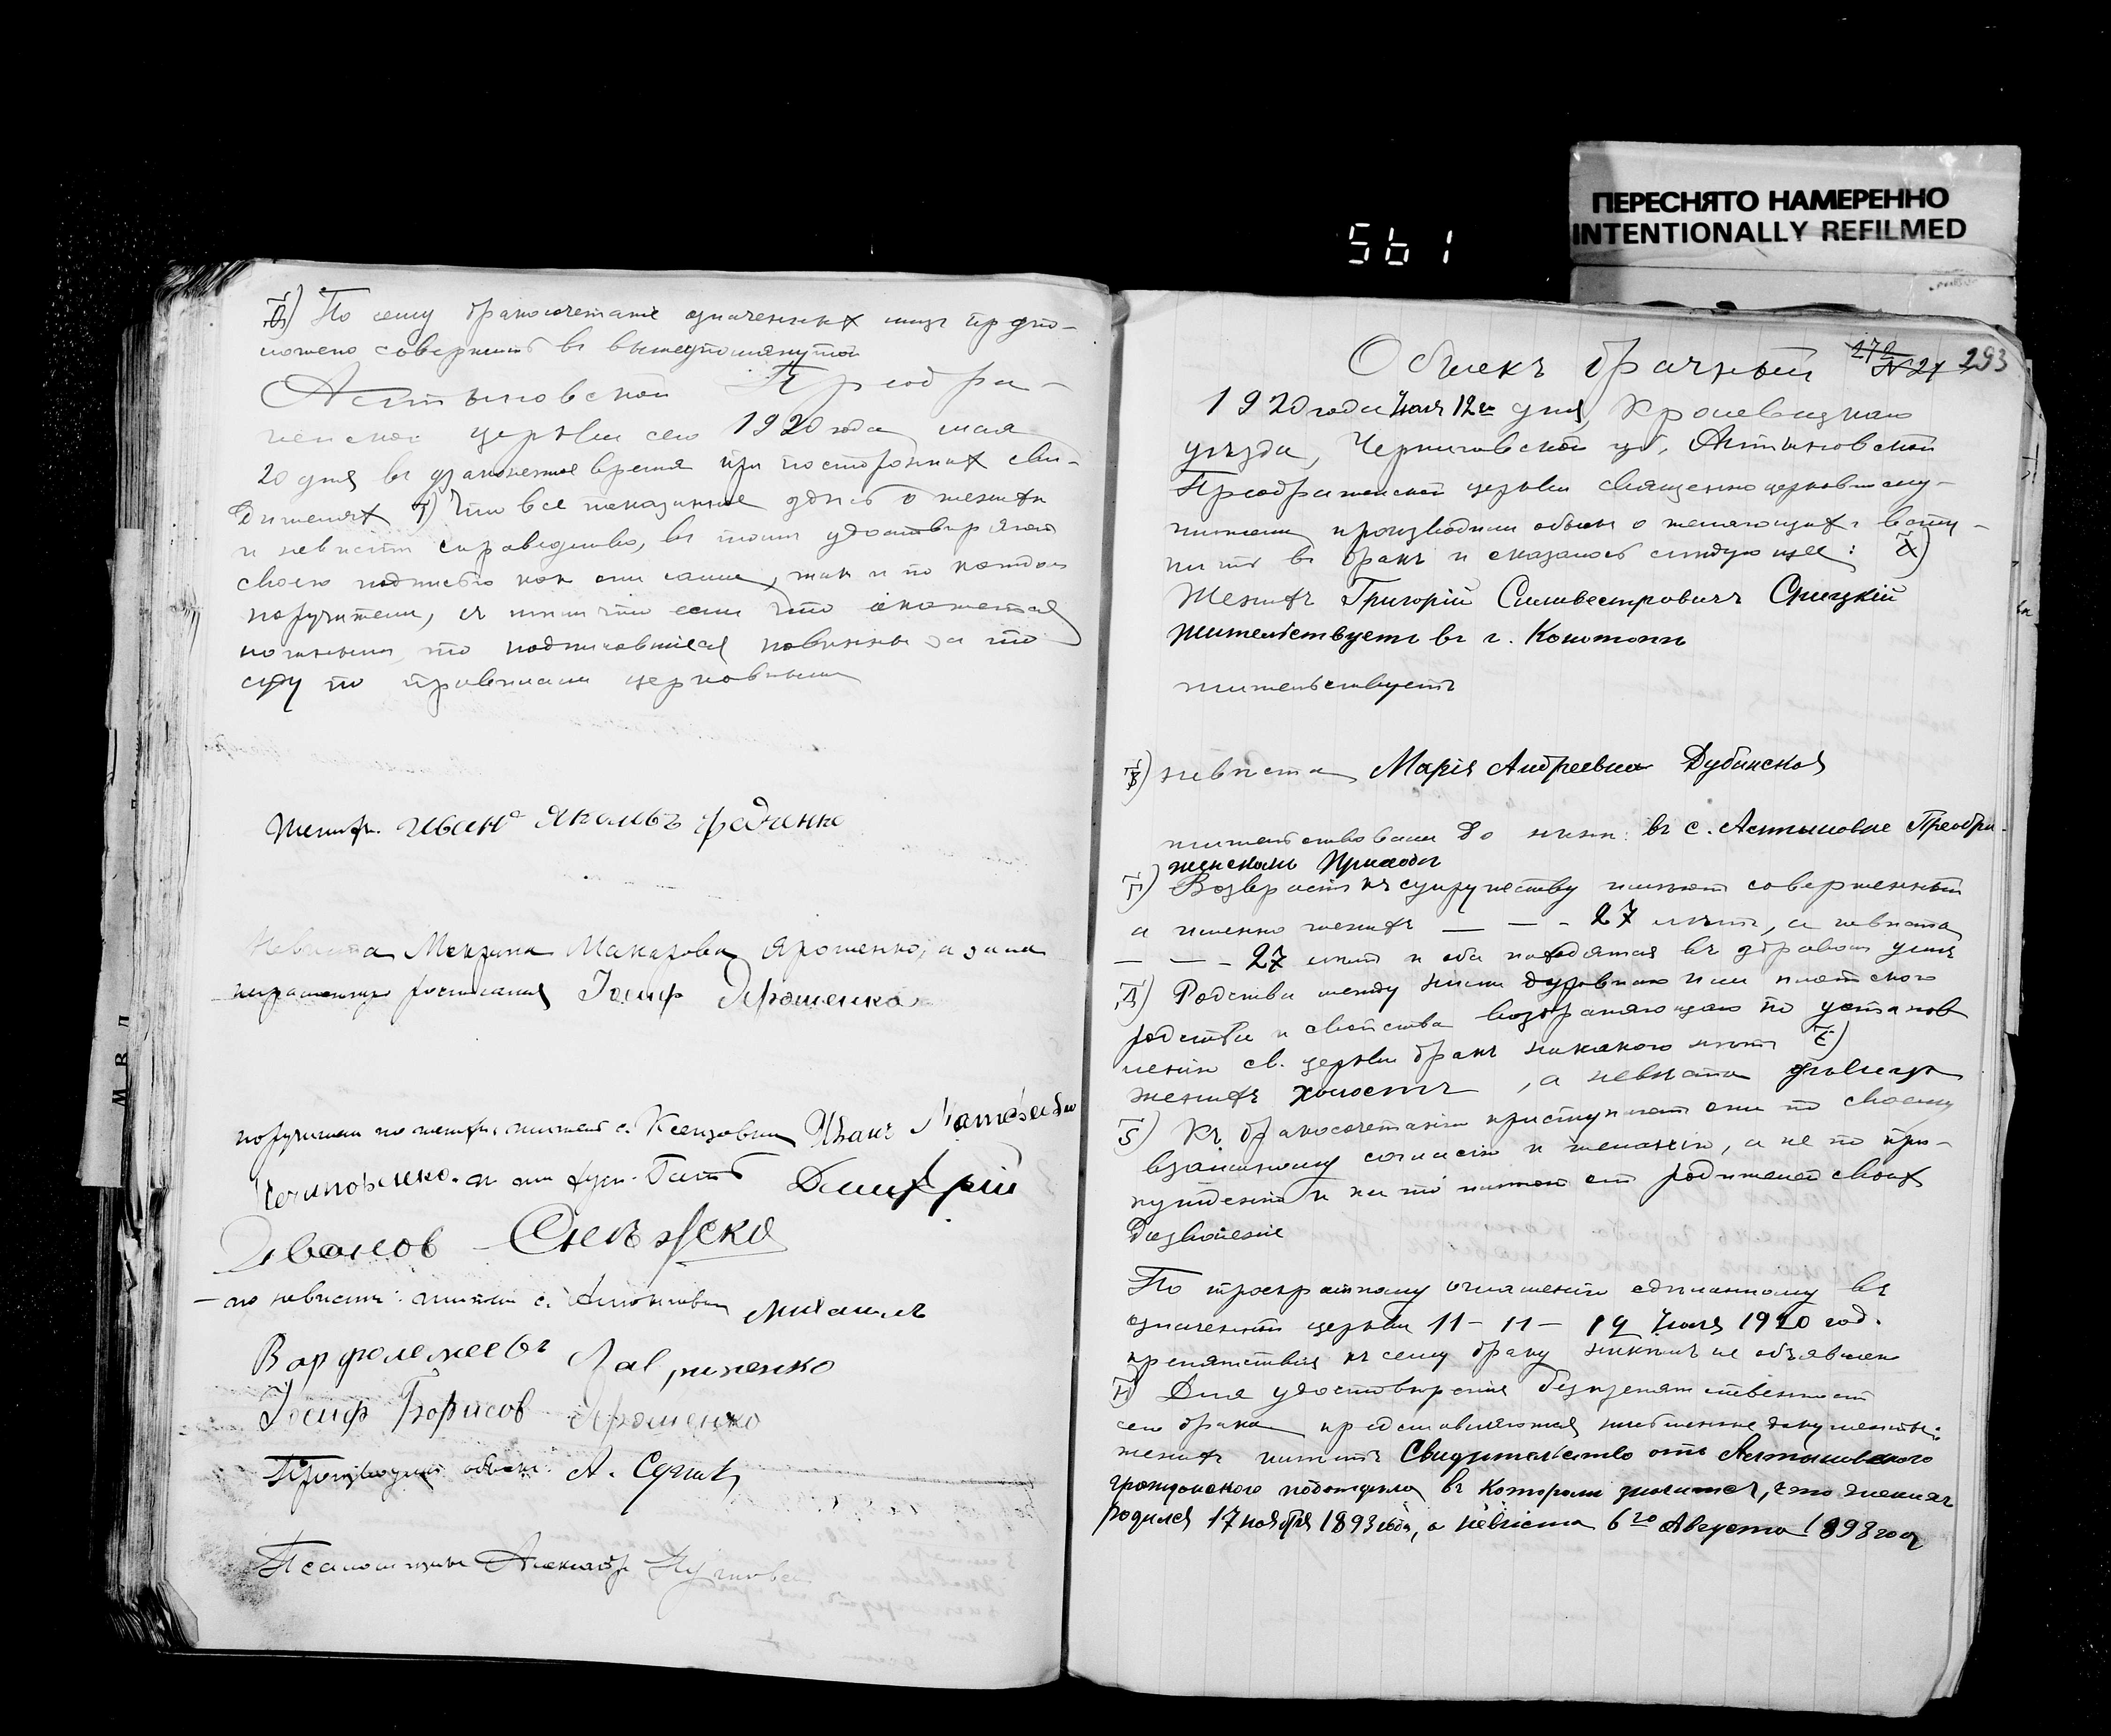 ПЕРЕСНЯТО НАМЕРЕННО
INTENTIONALLY REFILMED
561
М В Л
Ѳ) По сему бракосочетаніе означенныхъ лицъ предпо-
ложено совершить въ вышеупомянутой
Алтыновской Преобра-
женской церкви сего 1920 года мая
20 дня въ узаконенное время при постороннихъ сви-
дѣтеляхъ І) Что все показанное здѣсь о женихѣ
и невѣстѣ справедливо, въ томъ удостовѣряютъ
своею подписью какъ они сами, такъ и по каждом
поручители, съ тѣмъ что если что окажется
ложнымъ, то подписавшіеся повинны за то
суду по правиламъ церковнымъ
Женихъ Иванъ Яковлевъ
Невѣста Макарова Ярошенко, а за нея
неграмотную росписался Іосиф Ярошенко
поручители по женихѣ: житель с. Иванъ Матвѣевъ
Димитрій
Ивановъ
по невѣстѣ: жители с. Алтыновки Михаилъ
Варфоломеевъ Лавриненко
Іосиф Борисов Ярошенко
Производилъ обыскъ: А.
Псаломщикъ Александръ
Обыскъ брачный 272 N 21 293
1920 года Іюля 12го дня, Кролевецкаго
уѣзда, Черниговской губ. Алтыновской
Преображенской церкви священноцерковнослу-
жители производили обыскъ о желающихъ всту-
пить въ бракъ и оказалось слѣдующее: А)
Женихъ Григорій Силивестровичъ Слицкій
Жительствуетъ въ г. Конотопѣ
жительствуетъ
В) невѣста Марія Андреевна Дубинская
жительствовала до нынѣ: въ с. Алтыновкѣ Преобра-
женскомъ Приходѣ
Г) Возрастъ къ супружеству имѣютъ совершенный
а именно женихъ — — - 27 лѣтъ, а невѣста
— — - 27 лѣтъ и оба находятся въ здравомъ умѣ
Д) Родства между ними духовнаго или плотского
родства и свойства возбраняющаго по установ
ленію св. церкви бракъ никакого нѣтъ Е)
женихъ холостъ, а невѣста дѣвица
Ѕ) Къ бракосочетанію приступаютъ они по своему
взаимному согласію и желанію, а не по при-
нужденію и на то имѣютъ отъ родителей своихъ
дозволеніе
По троекратному оглашенію сдѣланному въ
означенной церкви 11 - 11 - 12 Іюля 1920 год.
препятствія къ сему браку никѣмъ не объявлено
И) Для удостовѣренія безпрепятственности
сего брака представляются письменные документы:
женихъ имѣетъ Свидѣтельство отъ Алтыновского
гражданского подотдела въ которомъ значится, что женихъ
родился 17 ноября 1893 года, а невѣста 6го Августа 1898 года